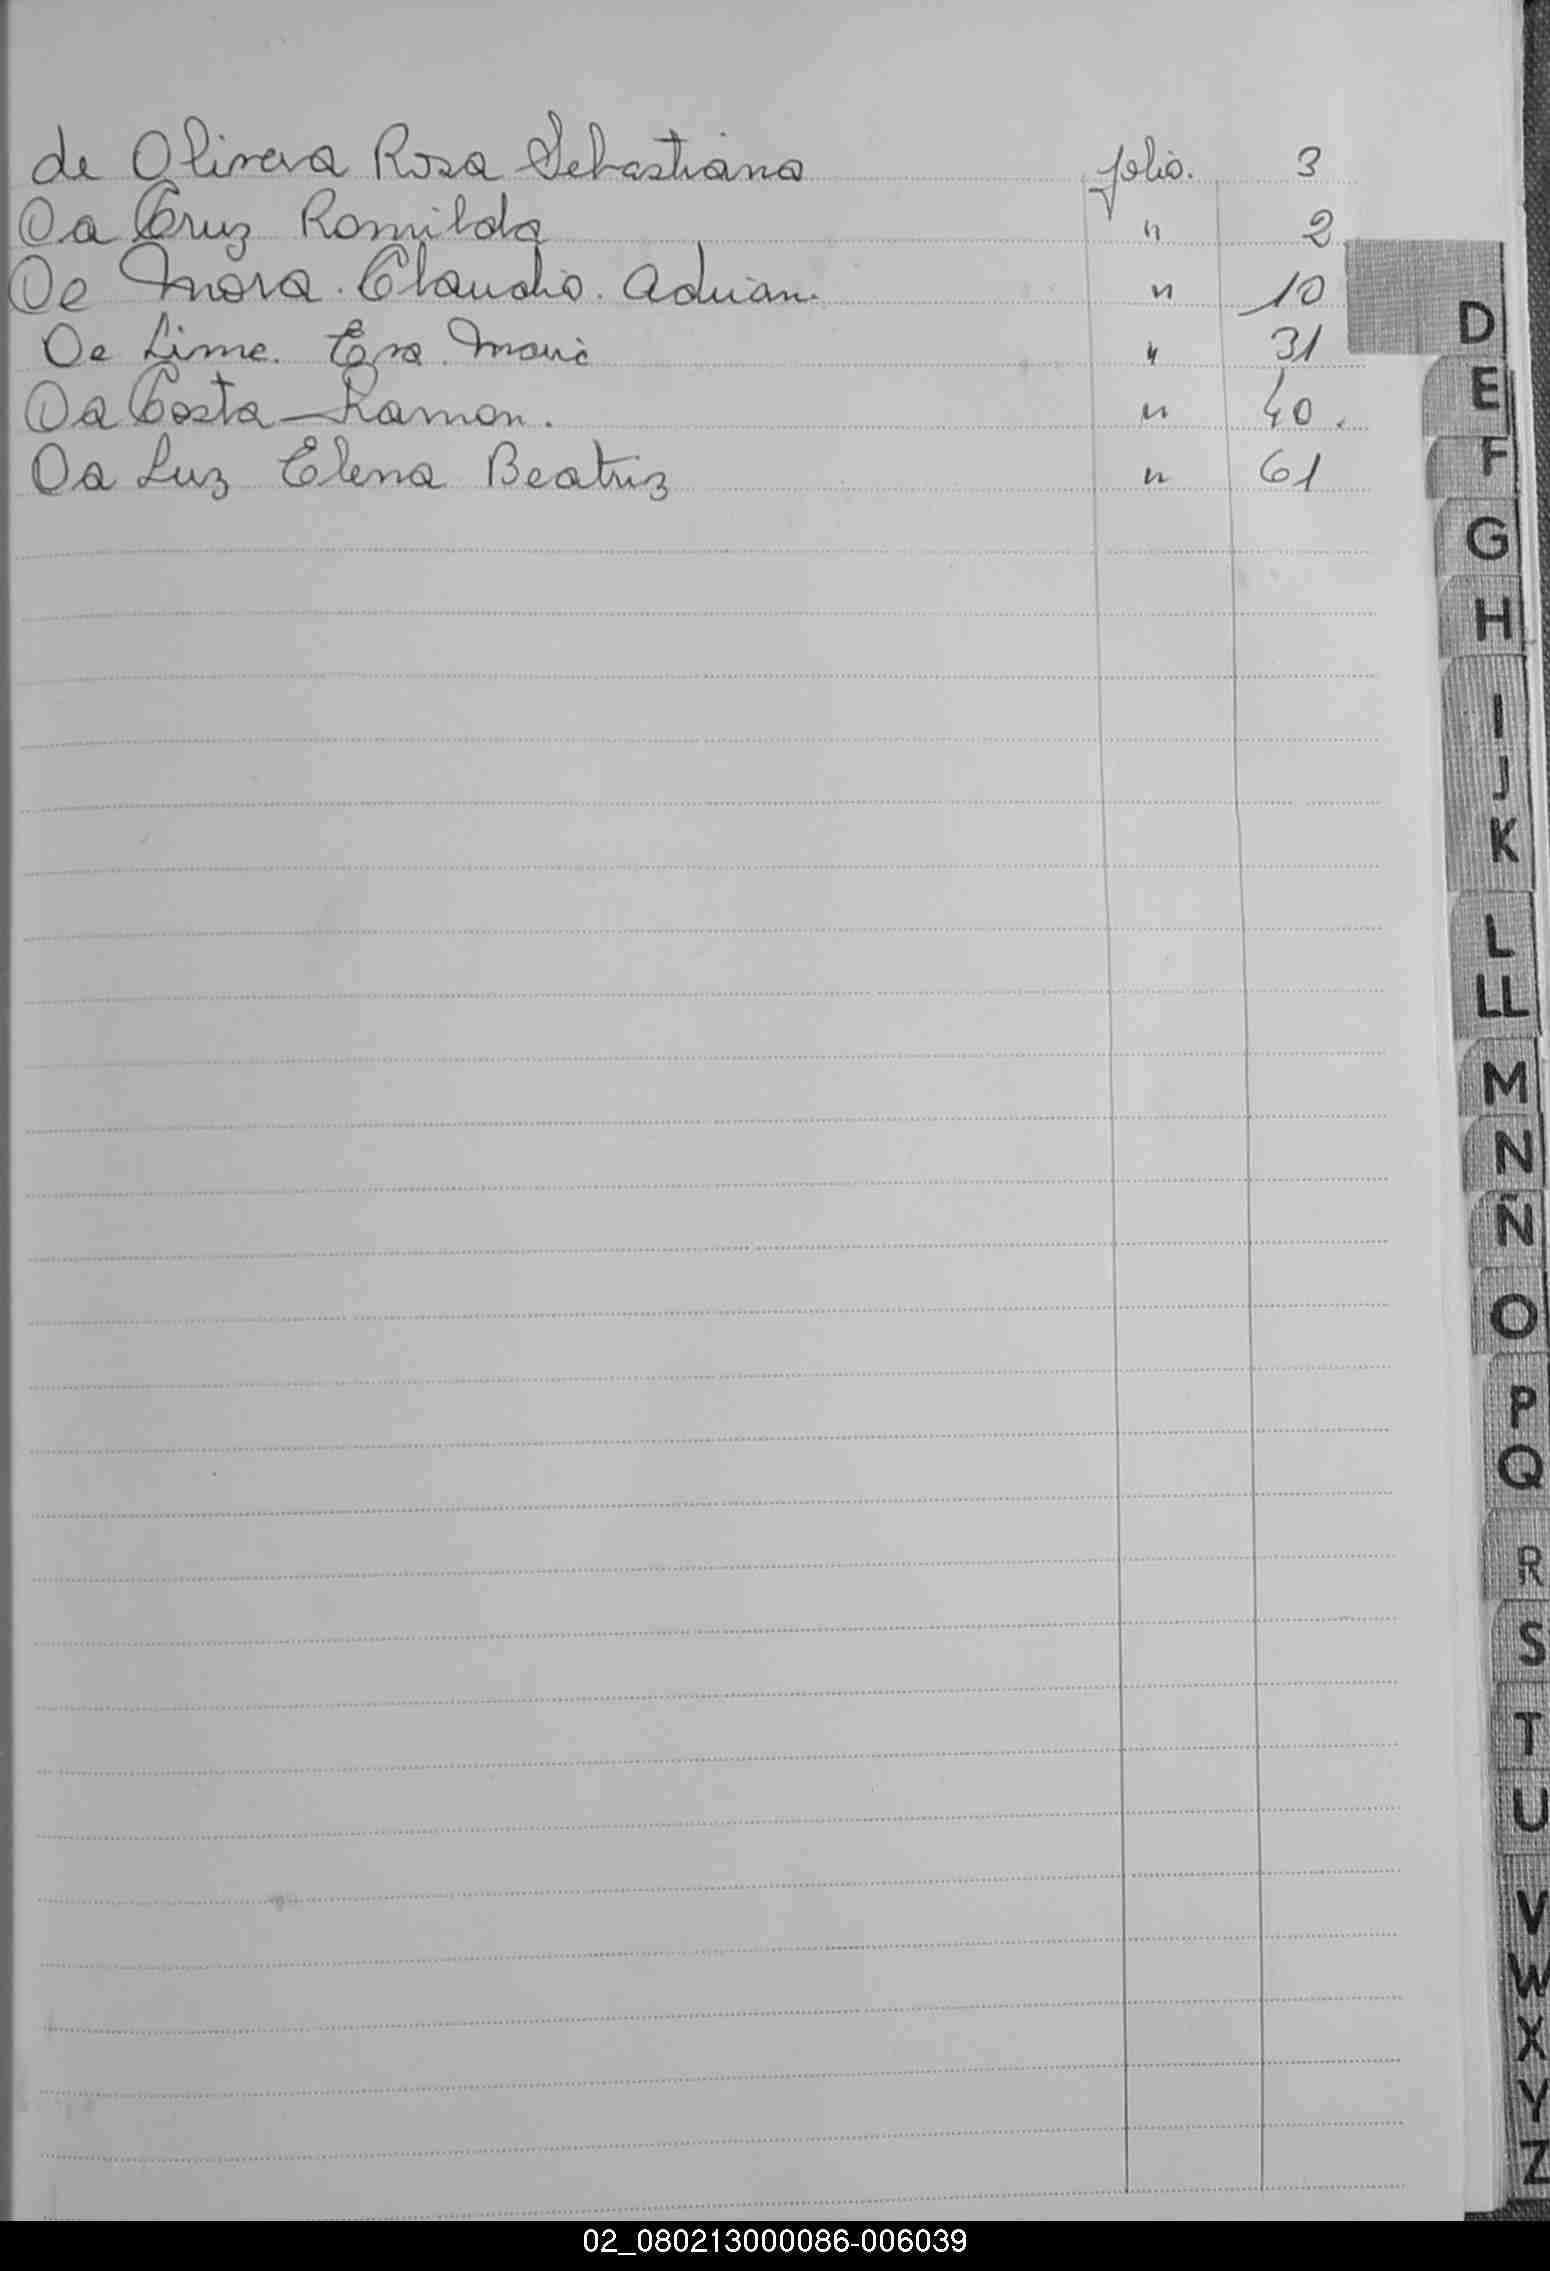 de Olivera Rosa Sebastiana folio. 3
Da Cruz Romilda " 2
De Mora. Claudio. Adrian. " 10
De Lima. Eva Maria " 31
Da Costa - Ramon. " 40.
Da Luz Elena Beatriz " 61
D
E
F
G
H
I
J
K
L
LL
M
N
Ñ
O
P
Q
R
S
T
U
V
W
X
Y
Z
02_080213000086-006039